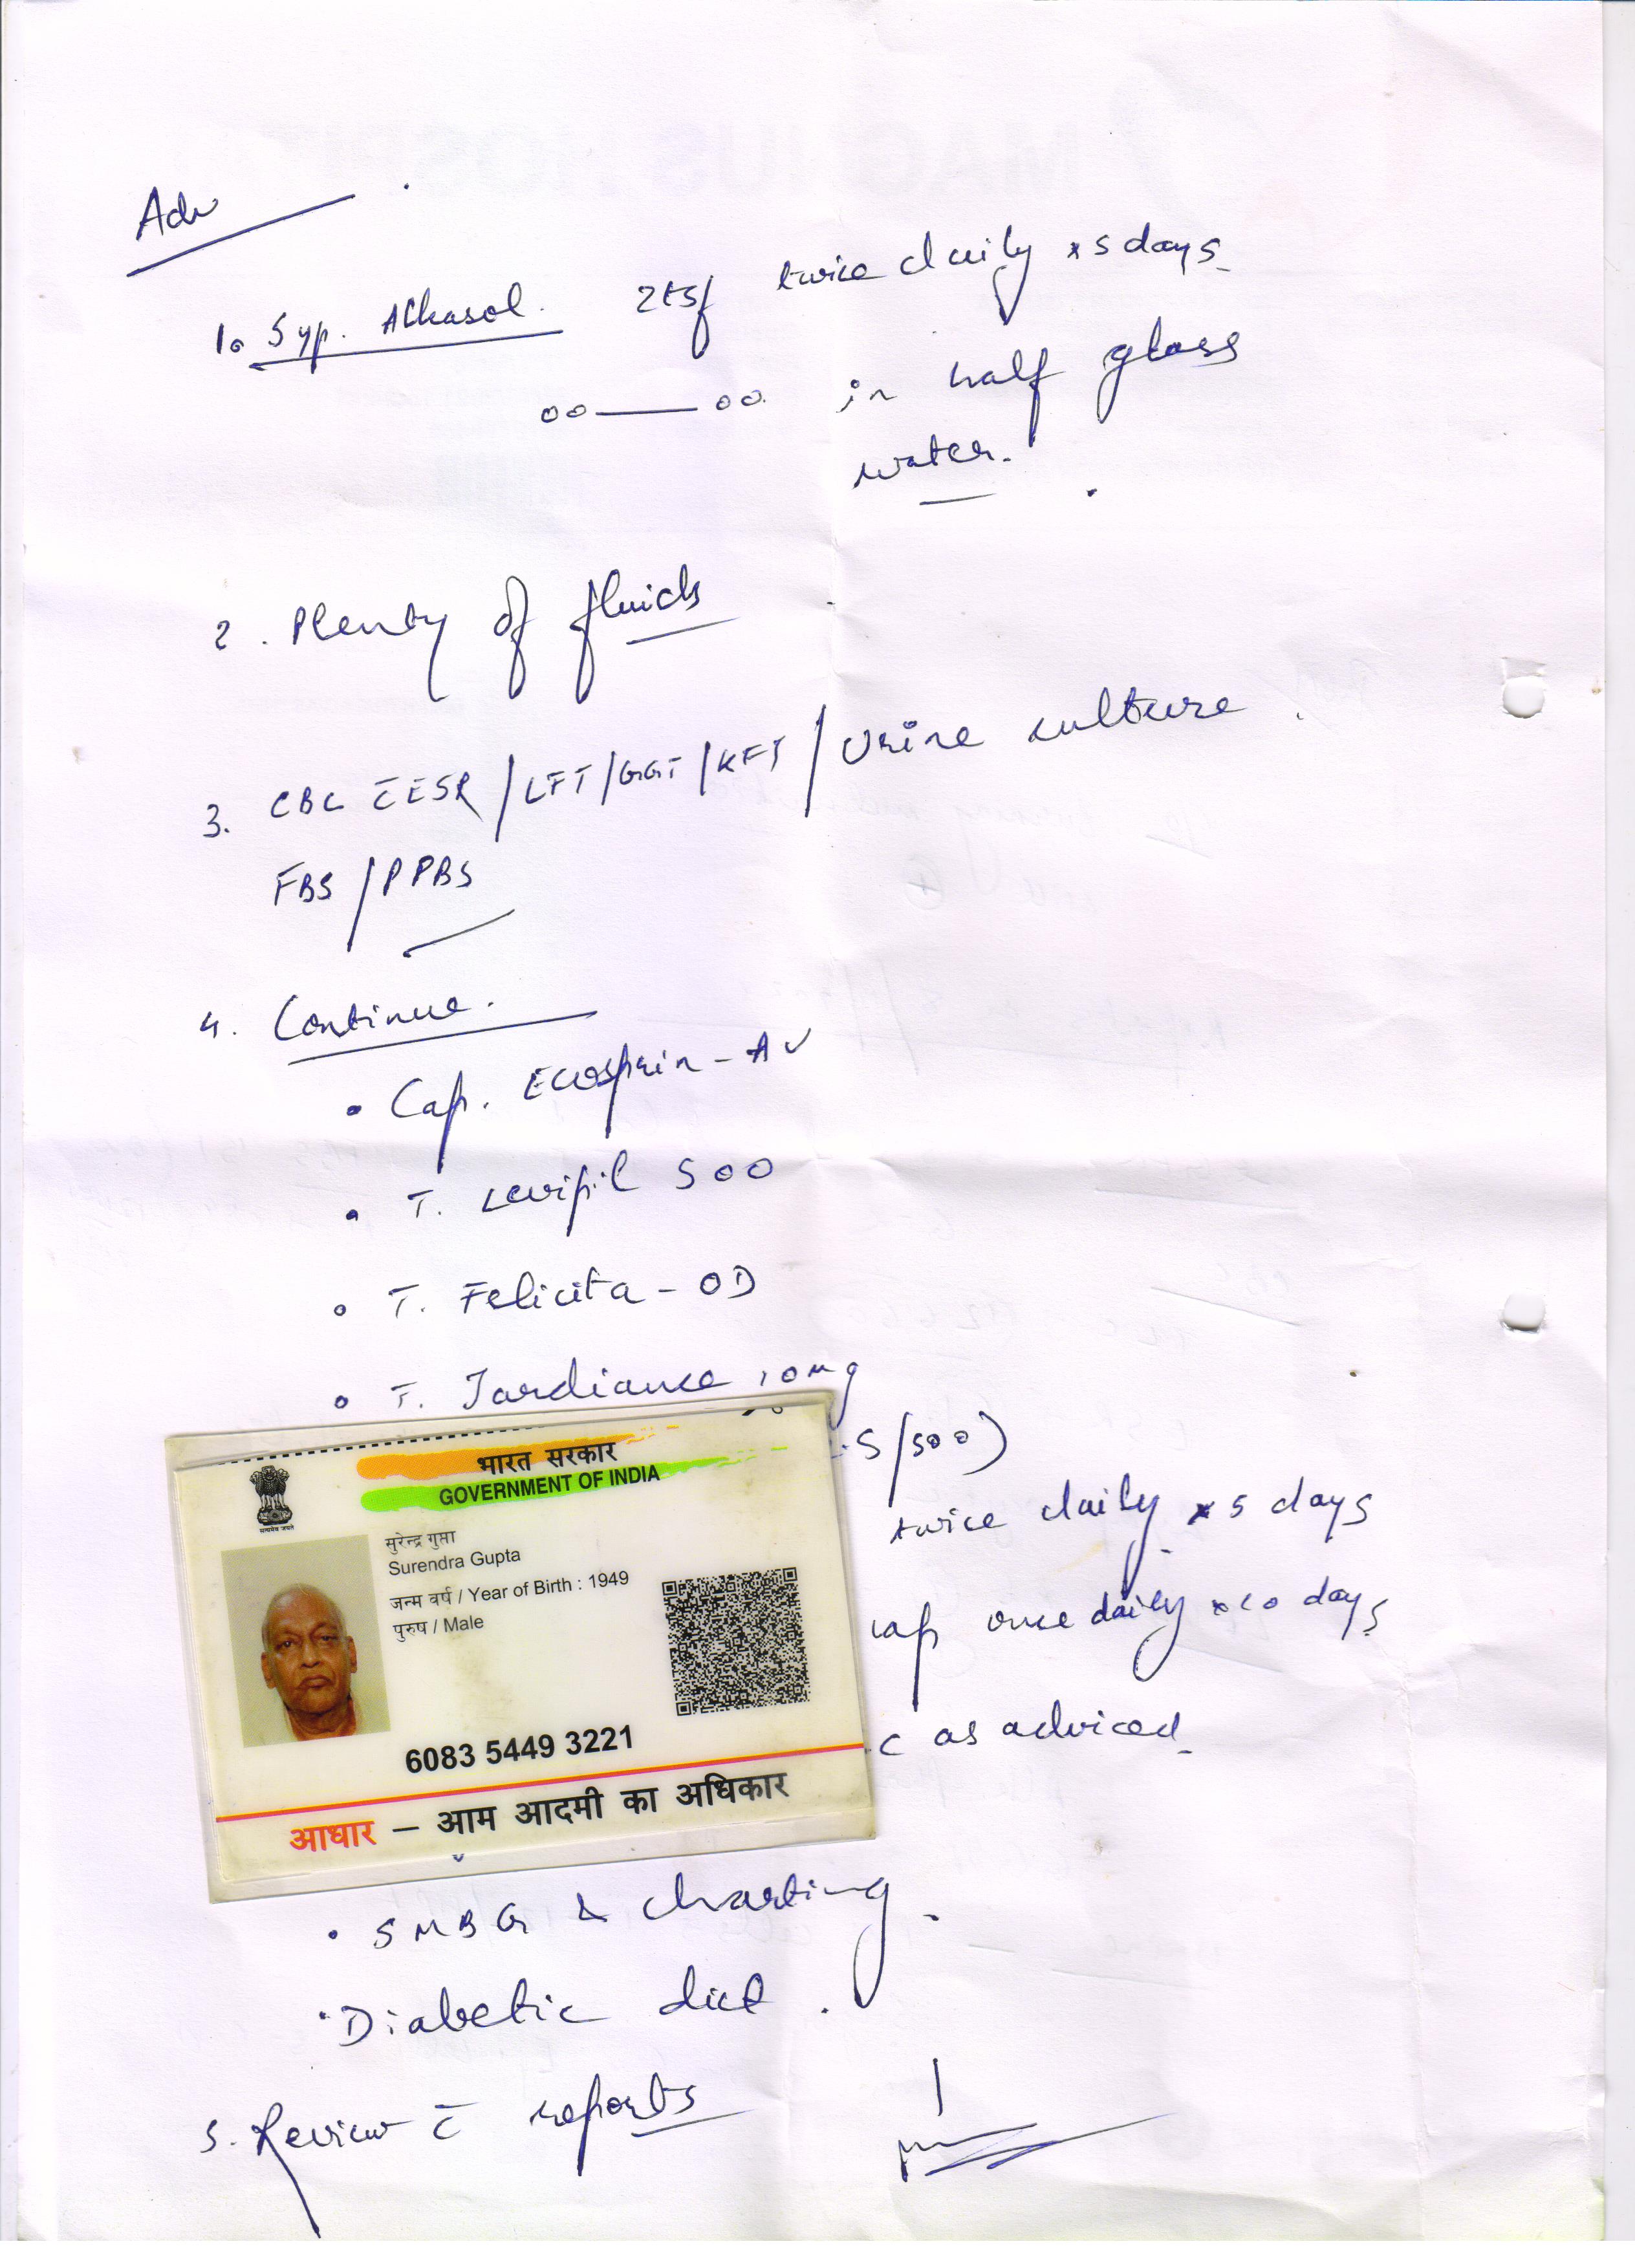 Adv
1. Syp. Alkasol. 2tsf twice daily x 5 days
oo — oo. in half glass
water.
2. Plenty of fluids
3. CBC c̄ ESR / LFT / GGT / KFT / Urine culture
FBS / PPBS
4. Continue.
• Cap. Ecosprin - AV
• T. Levipil 500
• T. Felicita - OD
• T. Jardiance 10mg
.5/500)
twice daily x 5 days
cap once daily x 10 days
c as adviced
भारत सरकार
GOVERNMENT OF INDIA
सत्यमेव जयते
सुरेन्द्र गुप्ता
Surendra Gupta
जन्म वर्ष / Year of Birth : 1949
पुरुष / Male
6083 5449 3221
आधार – आम आदमी का अधिकार
• SMBG & charting.
• Diabetic diet.
5. Review c̄ reports